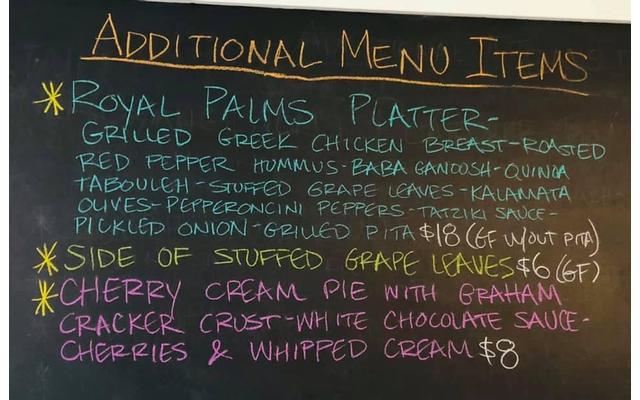 ADDITIONAL MENU ITEMS
* ROYAL PALMS PLATTER-
GRILLED GREEK CHICKEN BREAST-ROASTED
RED PEPPER HUMMUS-BABA GANOOSH-QUINOA
TABOULEH-STUFFED GRAPE LEAVES-KALAMATA
OLIVES-PEPPERONCINI PEPPERS-TATZIKI SAUCE-
PICKLED ONION-GRILLED PITA $18 (GF W/OUT PITA)
* SIDE OF STUFFED GRAPE LEAVES $6 (GF)
* CHERRY CREAM PIE WITH GRAHAM
CRACKER CRUST-WHITE CHOCOLATE SAUCE-
CHERRIES & WHIPPED CREAM $8